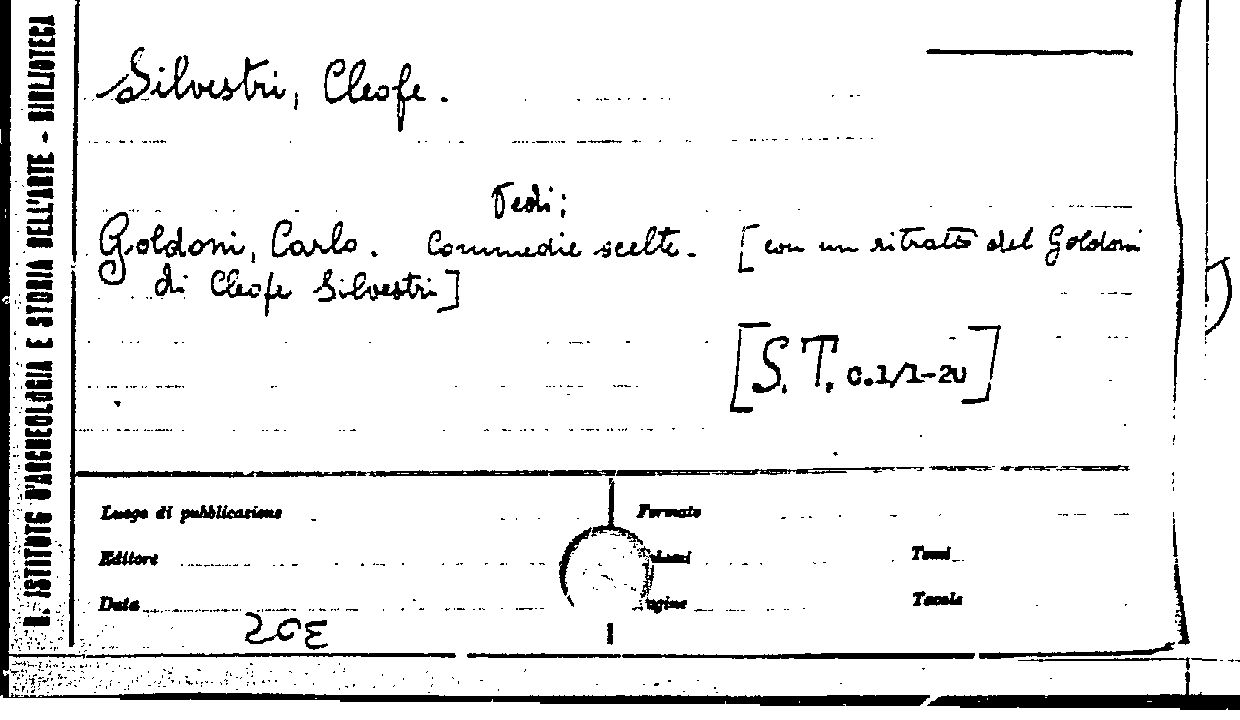 R. ISTITUTO D'ARCHEOLOGIA E STORIA DELL'ARTE - BIBLIOTECA
Silvestri, Cleofe.
Vedi:
Goldoni, Carlo. Commedie scelte. [con un ritratto del Goldoni
di Cleofe Silvestri]
[S. T. C.1/1-20]
Luogo di pubblicazione
Formato
Editore
Tomi
Data
Tavole